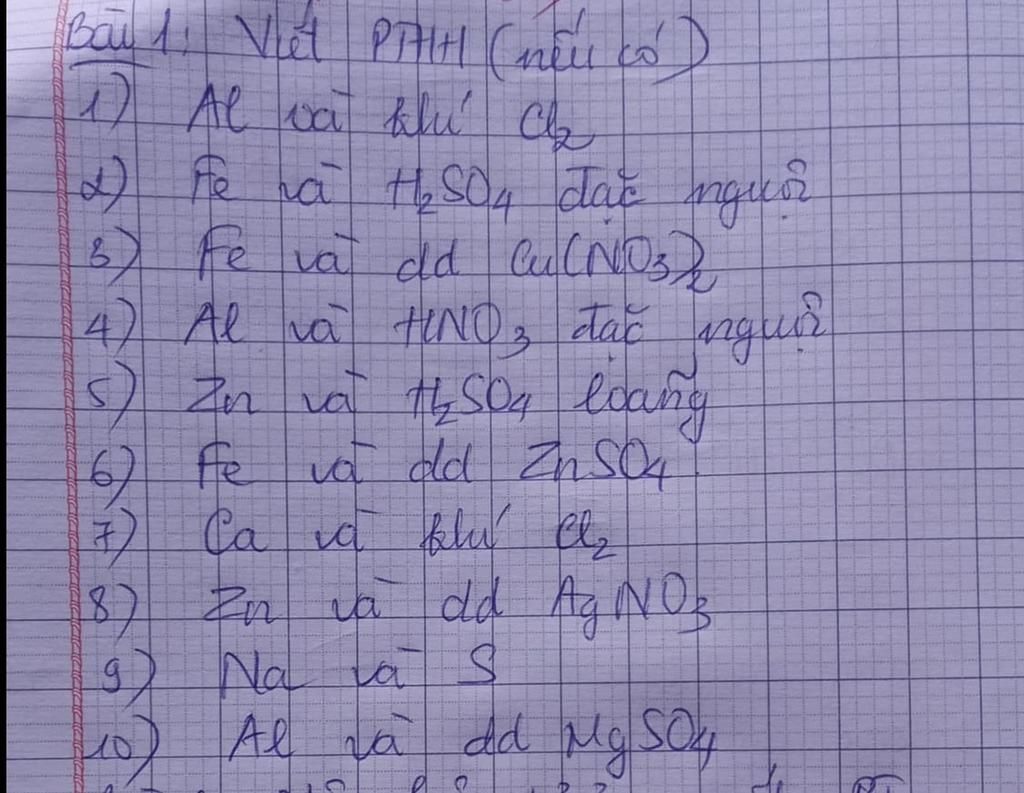 Bài 1: Viết PTHH (nếu có)
1) Al và khí Cl₂
2) Fe và H₂SO₄ đặc nguội
3) Fe và dd Cu(NO₃)₂
4) Al và HNO₃ đặc nguội
5) Zn và H₂SO₄ loãng
6) Fe và dd ZnSO₄
7) Ca và khí Cl₂
8) Zn và dd AgNO₃
9) Na và S
10) Al và dd MgSO₄